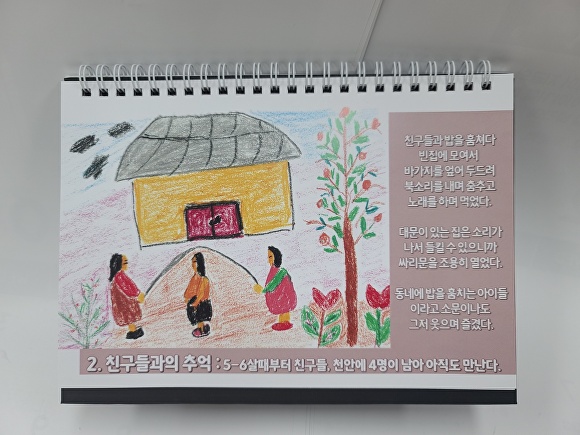 친구들과 밥을 훔쳐다
빈집에 모여서
바가지를 엎어 두드려
북소리를 내며 춤추고
노래를 하며 먹었다.
대문이 있는 집은 소리가
나서 들킬 수 있으니까
싸리문을 조용히 열었다.
동네에 밥을 훔치는 아이들
이라고 소문이나도
그저 웃으며 즐겼다.
2. 친구들과의 추억 : 5-6살때부터 친구들. 천안에 4명이 남아 아직도 만난다.